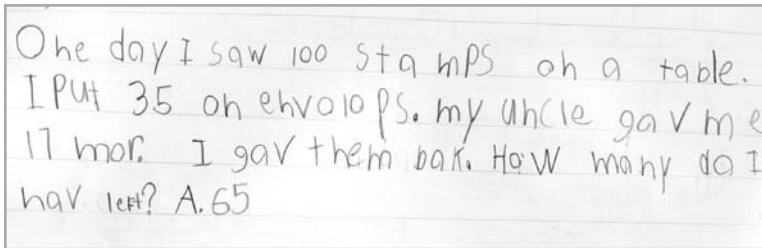 One day I saw 100 stamps on a table.
I Put 35 on envolops. my uncle gav me
17 mor. I gav them bak. How many do I
hav left? A. 65